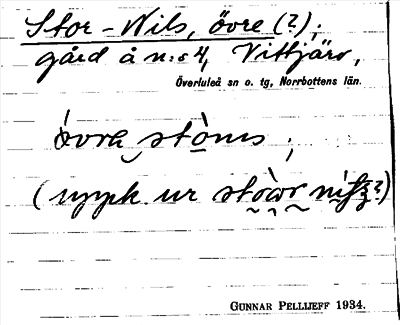 Stor-Nils, övre (?);
gård å n:o 4, Vittjärv,
Överluleå sn o. tg, Norrbottens län.
òvrȧ stòns ;
(uppk. ur
GUNNAR PELLIJEFF 1934.